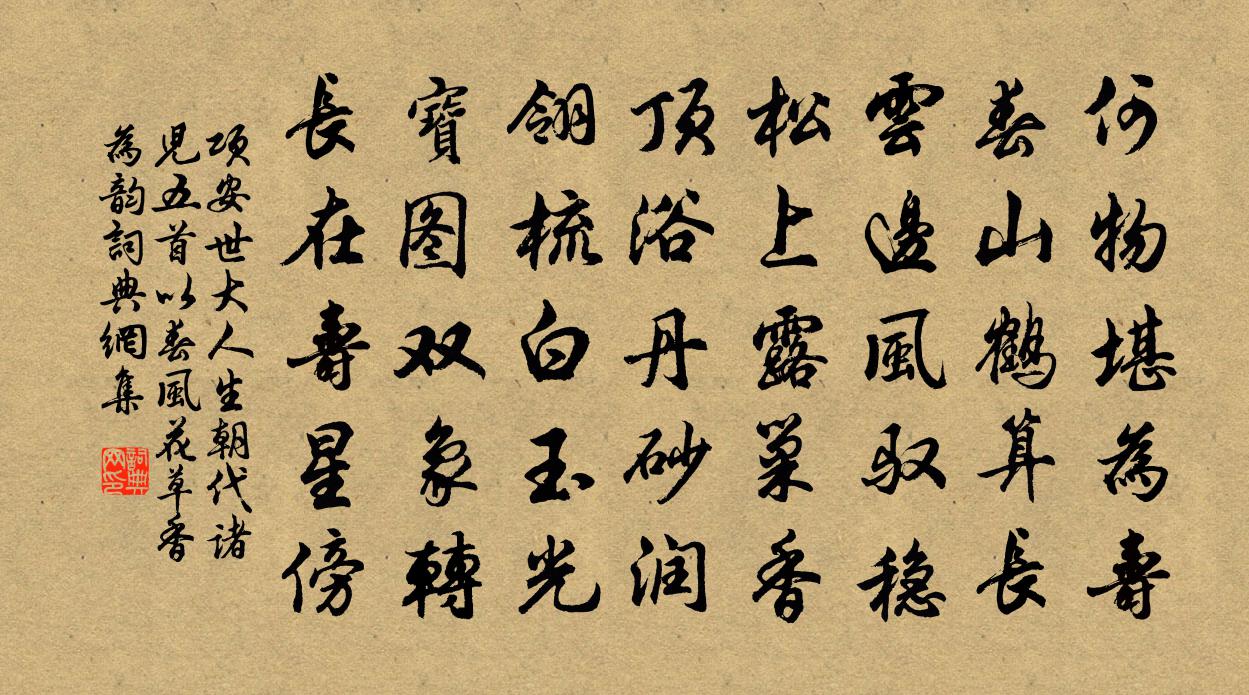 何物堪為壽
春山鶴算長
雲邊風驭稳
松上露巢香
頂浴丹砂润
翎梳白玉光
寶图双象轉
長在壽星傍
项安世大人生朝代诸
児五首以春風花草香
為韵詞典網集
詞典
网印